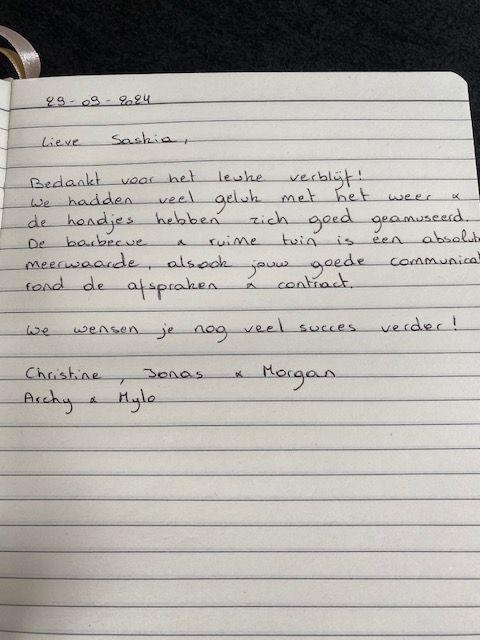 29-09-2024
Lieve Saskia,
Bedankt voor het leuke verblijf!
We hadden veel geluk met het weer &
de hondjes hebben zich goed geamuseerd.
De barbecue & ruime tuin is een absolut
meerwaarde, alsook jouw goede communicat
rond de afspraken & contract.
We wensen je nog veel succes verder!
Christine, Jonas & Morgan
Archy & Mylo